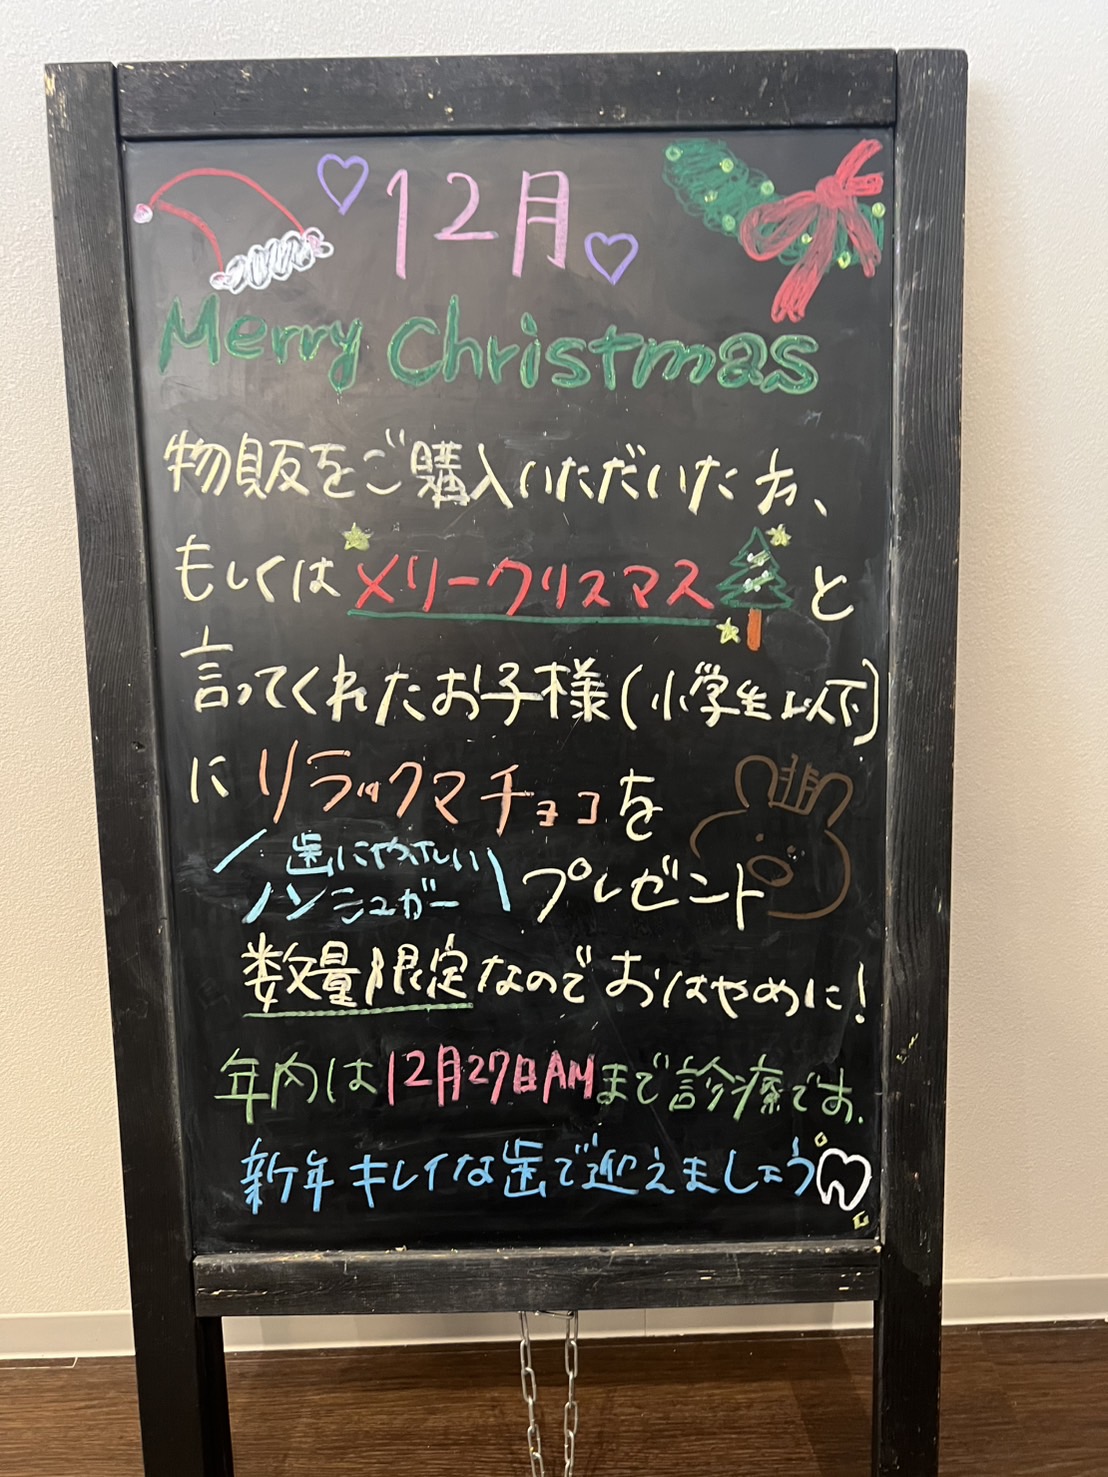 12月
Merry Christmas
物販をご購入いただいた方、
もしくはメリークリスマスと
言ってくれたお子様(小学生以下)
にリラックマチョコを
歯にやさしい
ノンシュガー
プレゼント
数量限定なのでおはやめに!
年内は12月27日AMまで診療です。
新年キレイな歯で迎えましょう